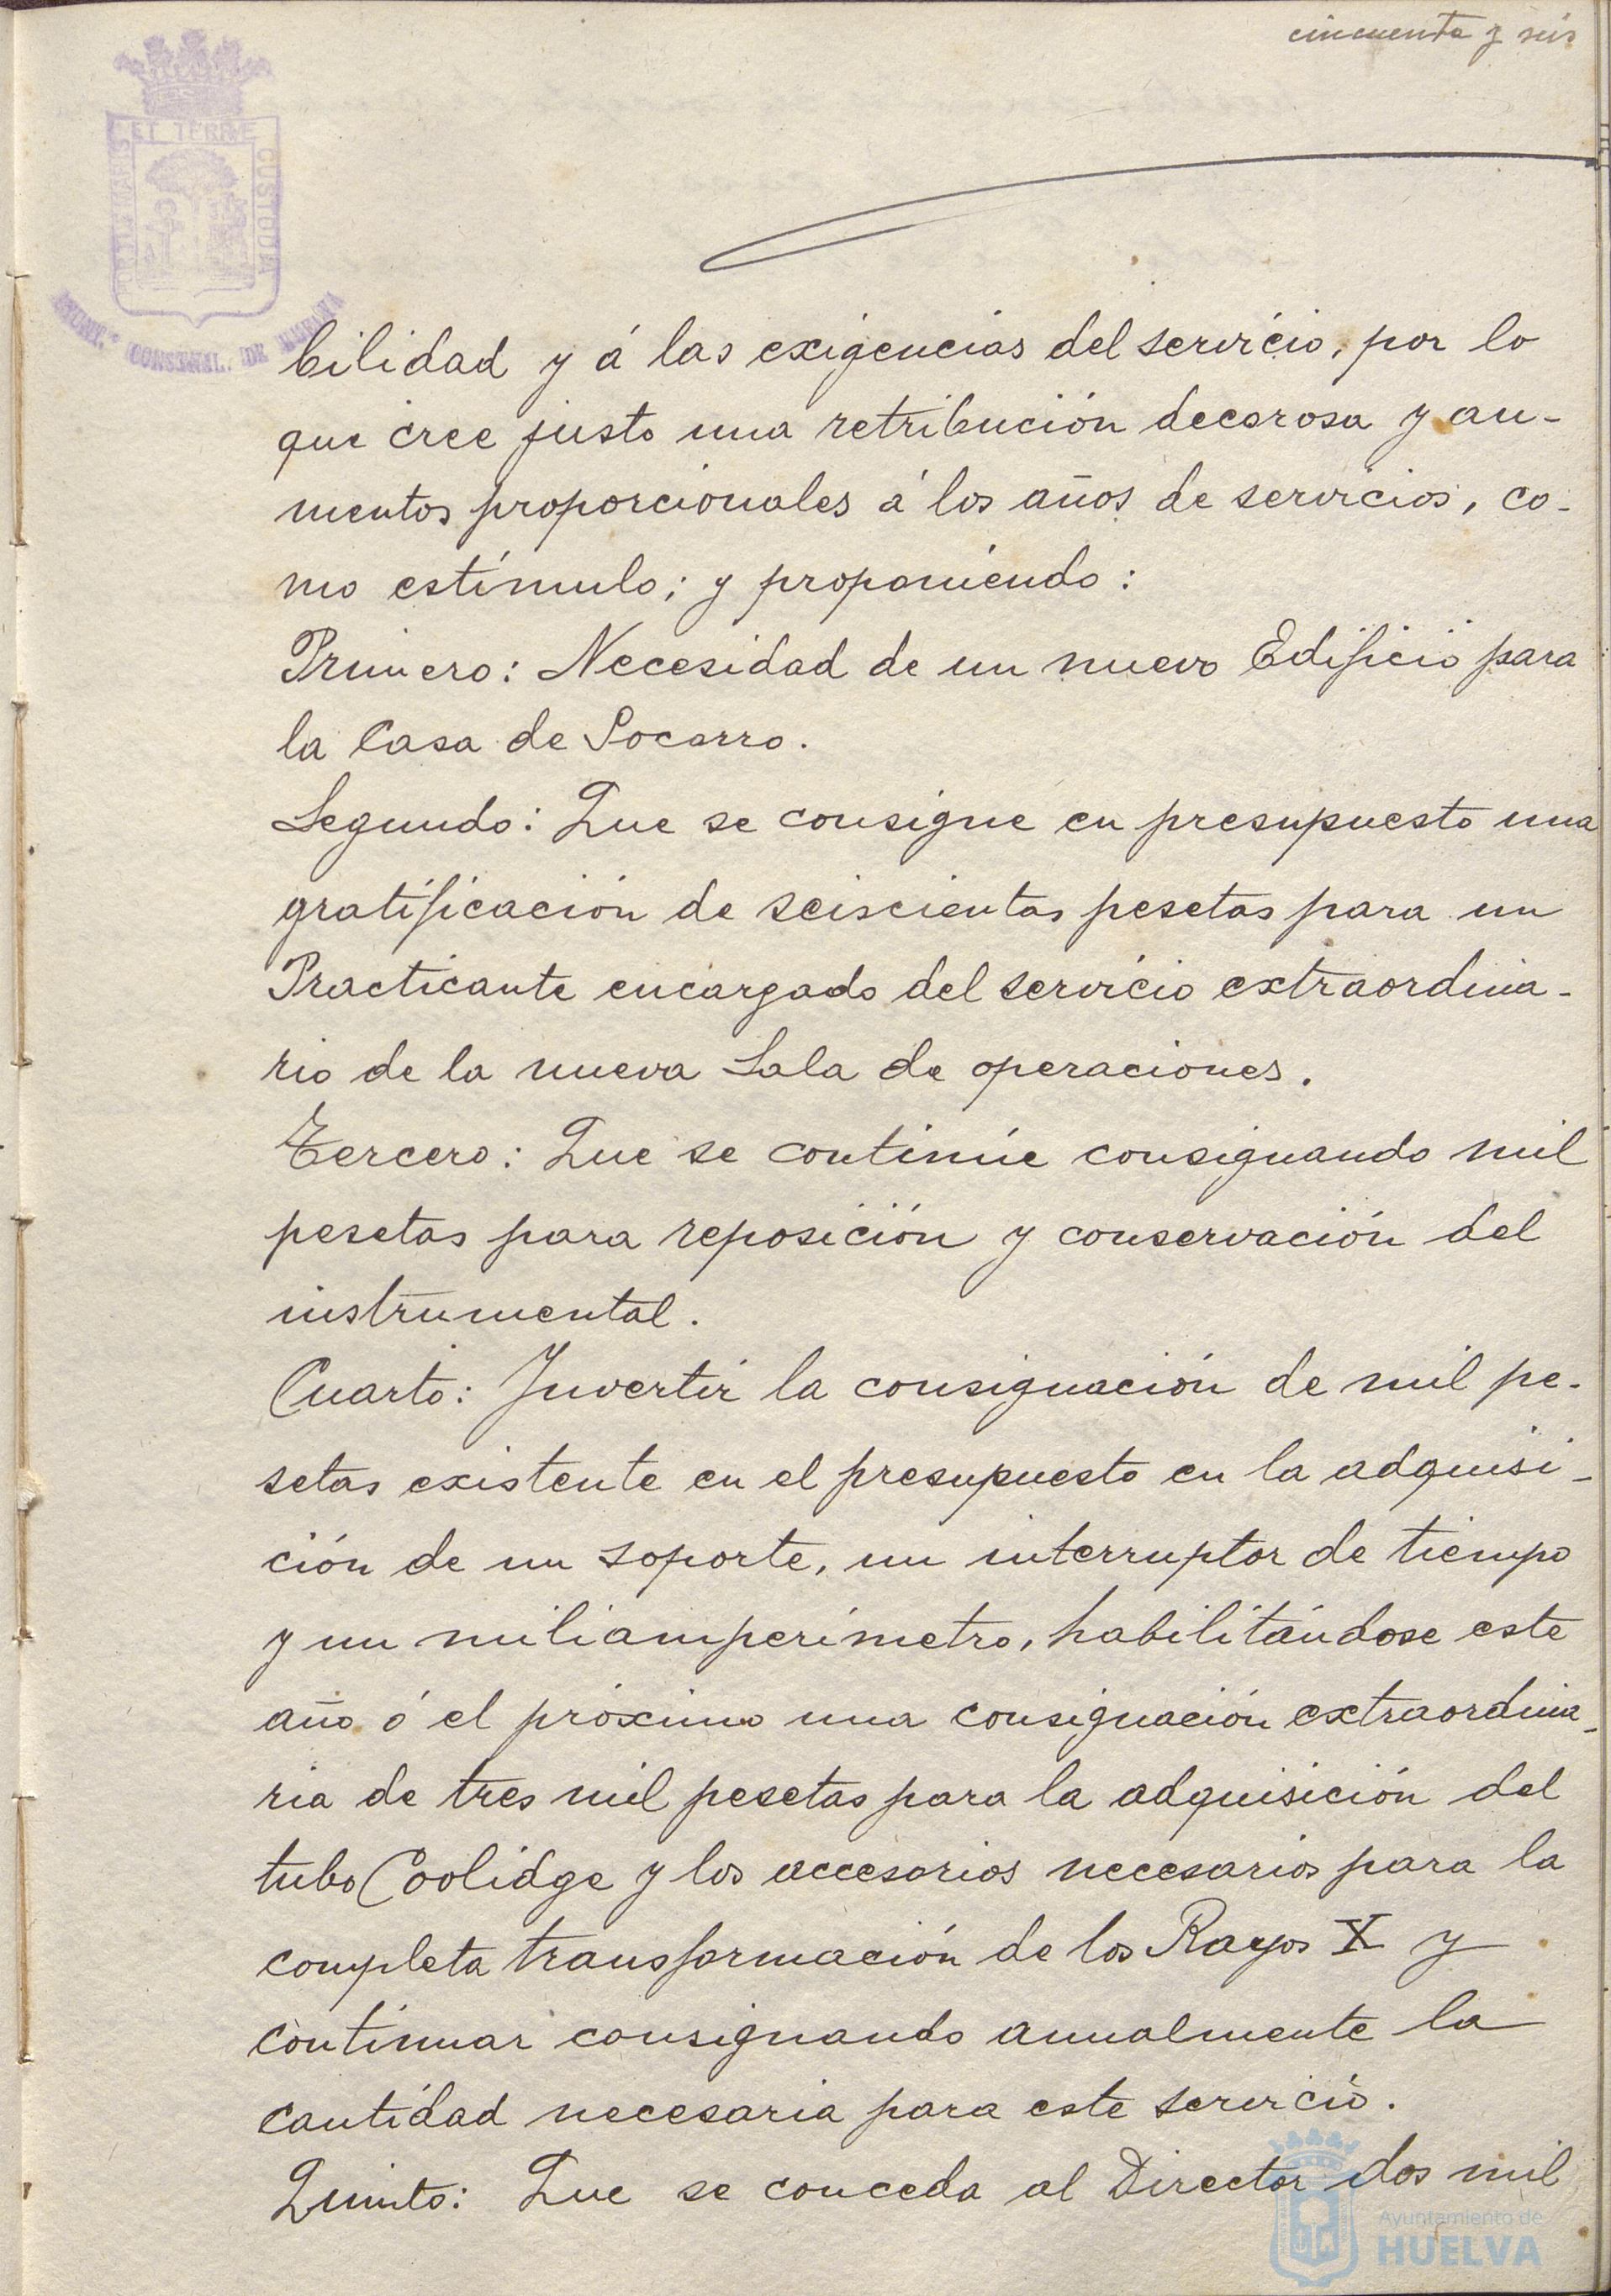 cincuenta y seis
ET TERRÆ
CUSTODIA
CONSTNAL. DE HUELVA
bilidad y á las exigencias del servicio, por lo
que cree justo una retribución decorosa y au-
mentos proporcionales á los años de servicios, co-
mo estímulo; y proponiendo:
Primero: Necesidad de un nuevo Edificio para
la Casa de Socorro.
Segundo: Que se consigne en presupuesto una
gratificación de seiscientas pesetas para un
Practicante encargado del servicio extraordina-
rio de la nueva Sala de operaciones.
Tercero: Que se continúe consignando mil
pesetas para reposición y conservación del
instrumental.
Cuarto: Invertir la consignación de mil pe-
setas existente en el presupuesto en la adquisi-
ción de un soporte, un interruptor de tiempo
y un miliamperímetro, habilitándose este
año ó el próximo una consignación extraordina-
ria de tres mil pesetas para la adquisición del
tubo Coolidge y los accesorios necesarios para la
completa transformación de los Rayos X y
continuar consignando anualmente la
cantidad necesaria para este servicio.
Quinto: Que se conceda al Director dos mil
Ayuntamiento de
HUELVA